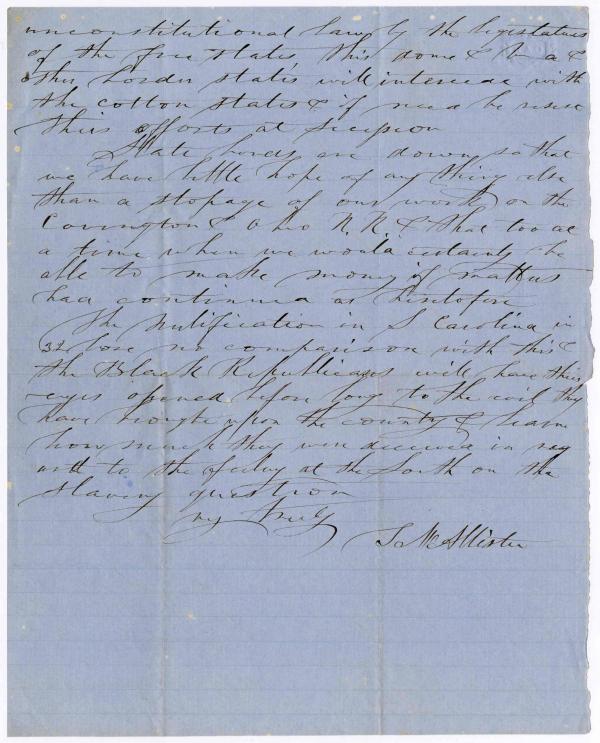 unconstitutional laws by the legislatures
of the free states this done & Va &
other border states will intercede with
the cotton states & if need be resist
their efforts at secession
State bonds are down so that
we have little hope of any thing else
than a stopage of our work on the
Covington & Ohio R.R & that too at
a time when we would certainly be
able to make money if matters
had continued as heretofore
The Nulification in S Carolina in
32 bore no comparison with this &
the Black Republicans will have their
eyes opened before long to the evil they
have brought upon the country & learn
how much they were deceived in reg
ard to the feeling at the South on the
slavery question
vy truly
McAllister